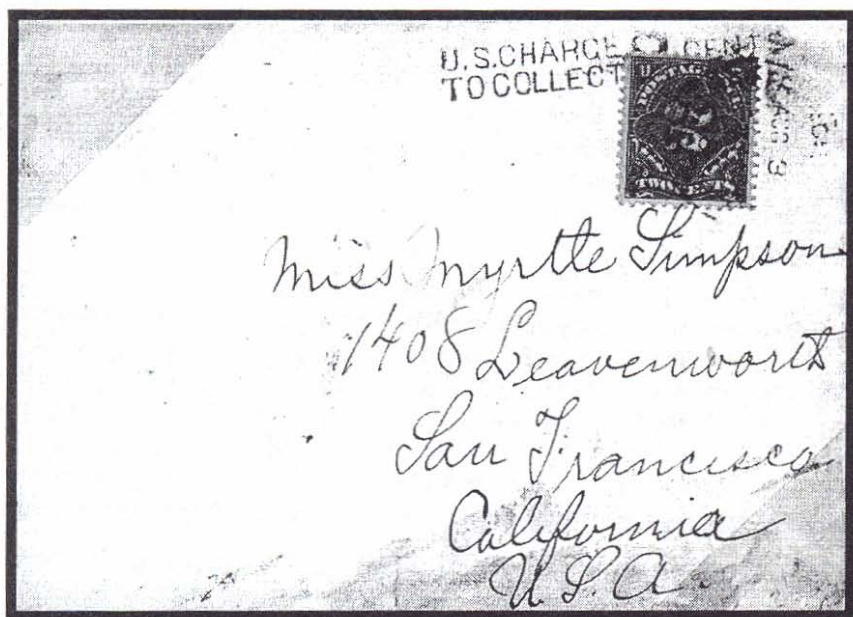 U.S. CHARGE CENT
TO COLLECT
POSTAGE
2
TWO CENTS
AUG 3
Miss Myrtle Simpson
1408 Leavenworth
San Francisco
California
U.S.A.